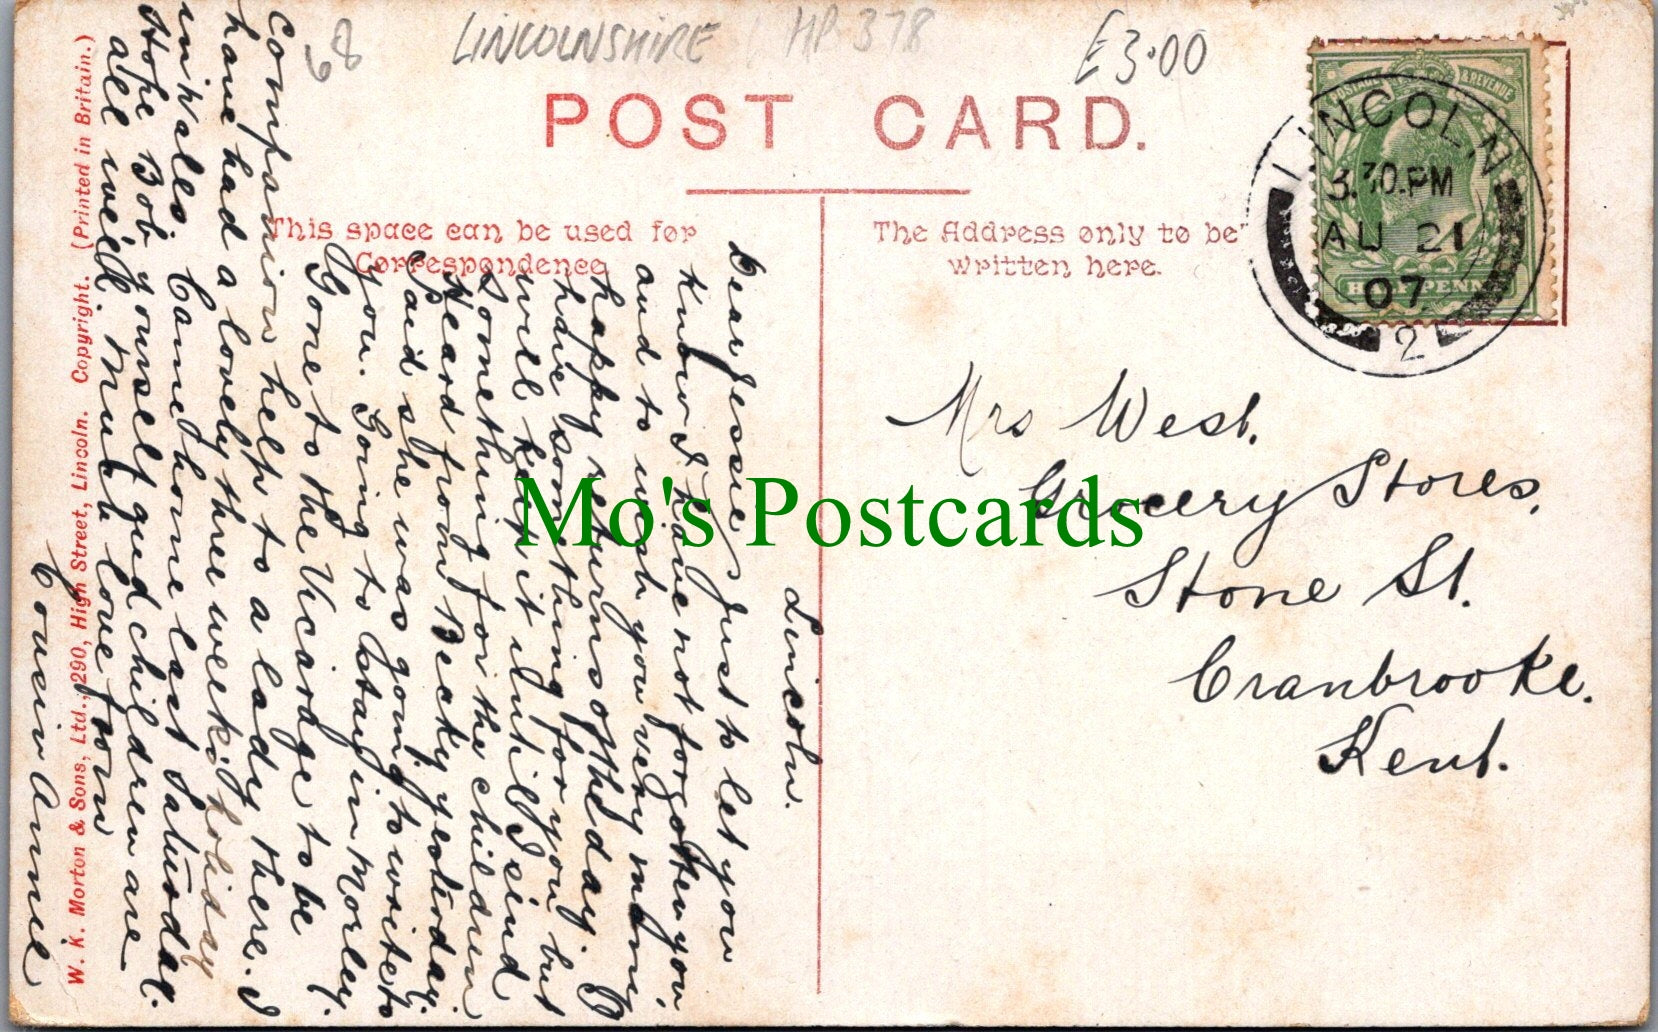 LINCOLNSHIRE HP 378
£3.00
68
POST CARD.
This space can be used for
Correspondence
The Address only to be
written here.
POSTAGE & REVENUE
HALFPENNY
LINCOLN
3.30.PM
AU 21
07
2
Lincoln.
Dear Jessie, Just to let you
know I have not forgotten you,
and to wish you very many
happy returns of the day. I
have something for you but
will keep it until I send
something for the children
Heard from Becky yesterday.
Said she was going to write to
you. Going to stay in Morley.
Gone to the Vicarage to be
Companion help to a lady there. I
have had a lovely three weeks holiday
in Wales. Came home last Saturday.
Hope Bob yourself and children are
all well. Much love from
Cousin Annie
Mrs West.
Grocery Stores,
Stone St.
Cranbrooke.
Kent.
W. K. Morton & Sons, Ltd., 290, High Street, Lincoln. Copyright. (Printed in Britain.)
Mo's Postcards